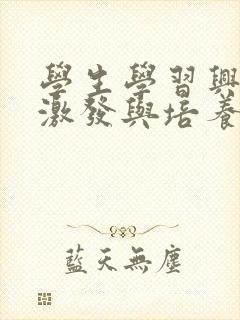 學生學習興
激發與培養
藍天無塵